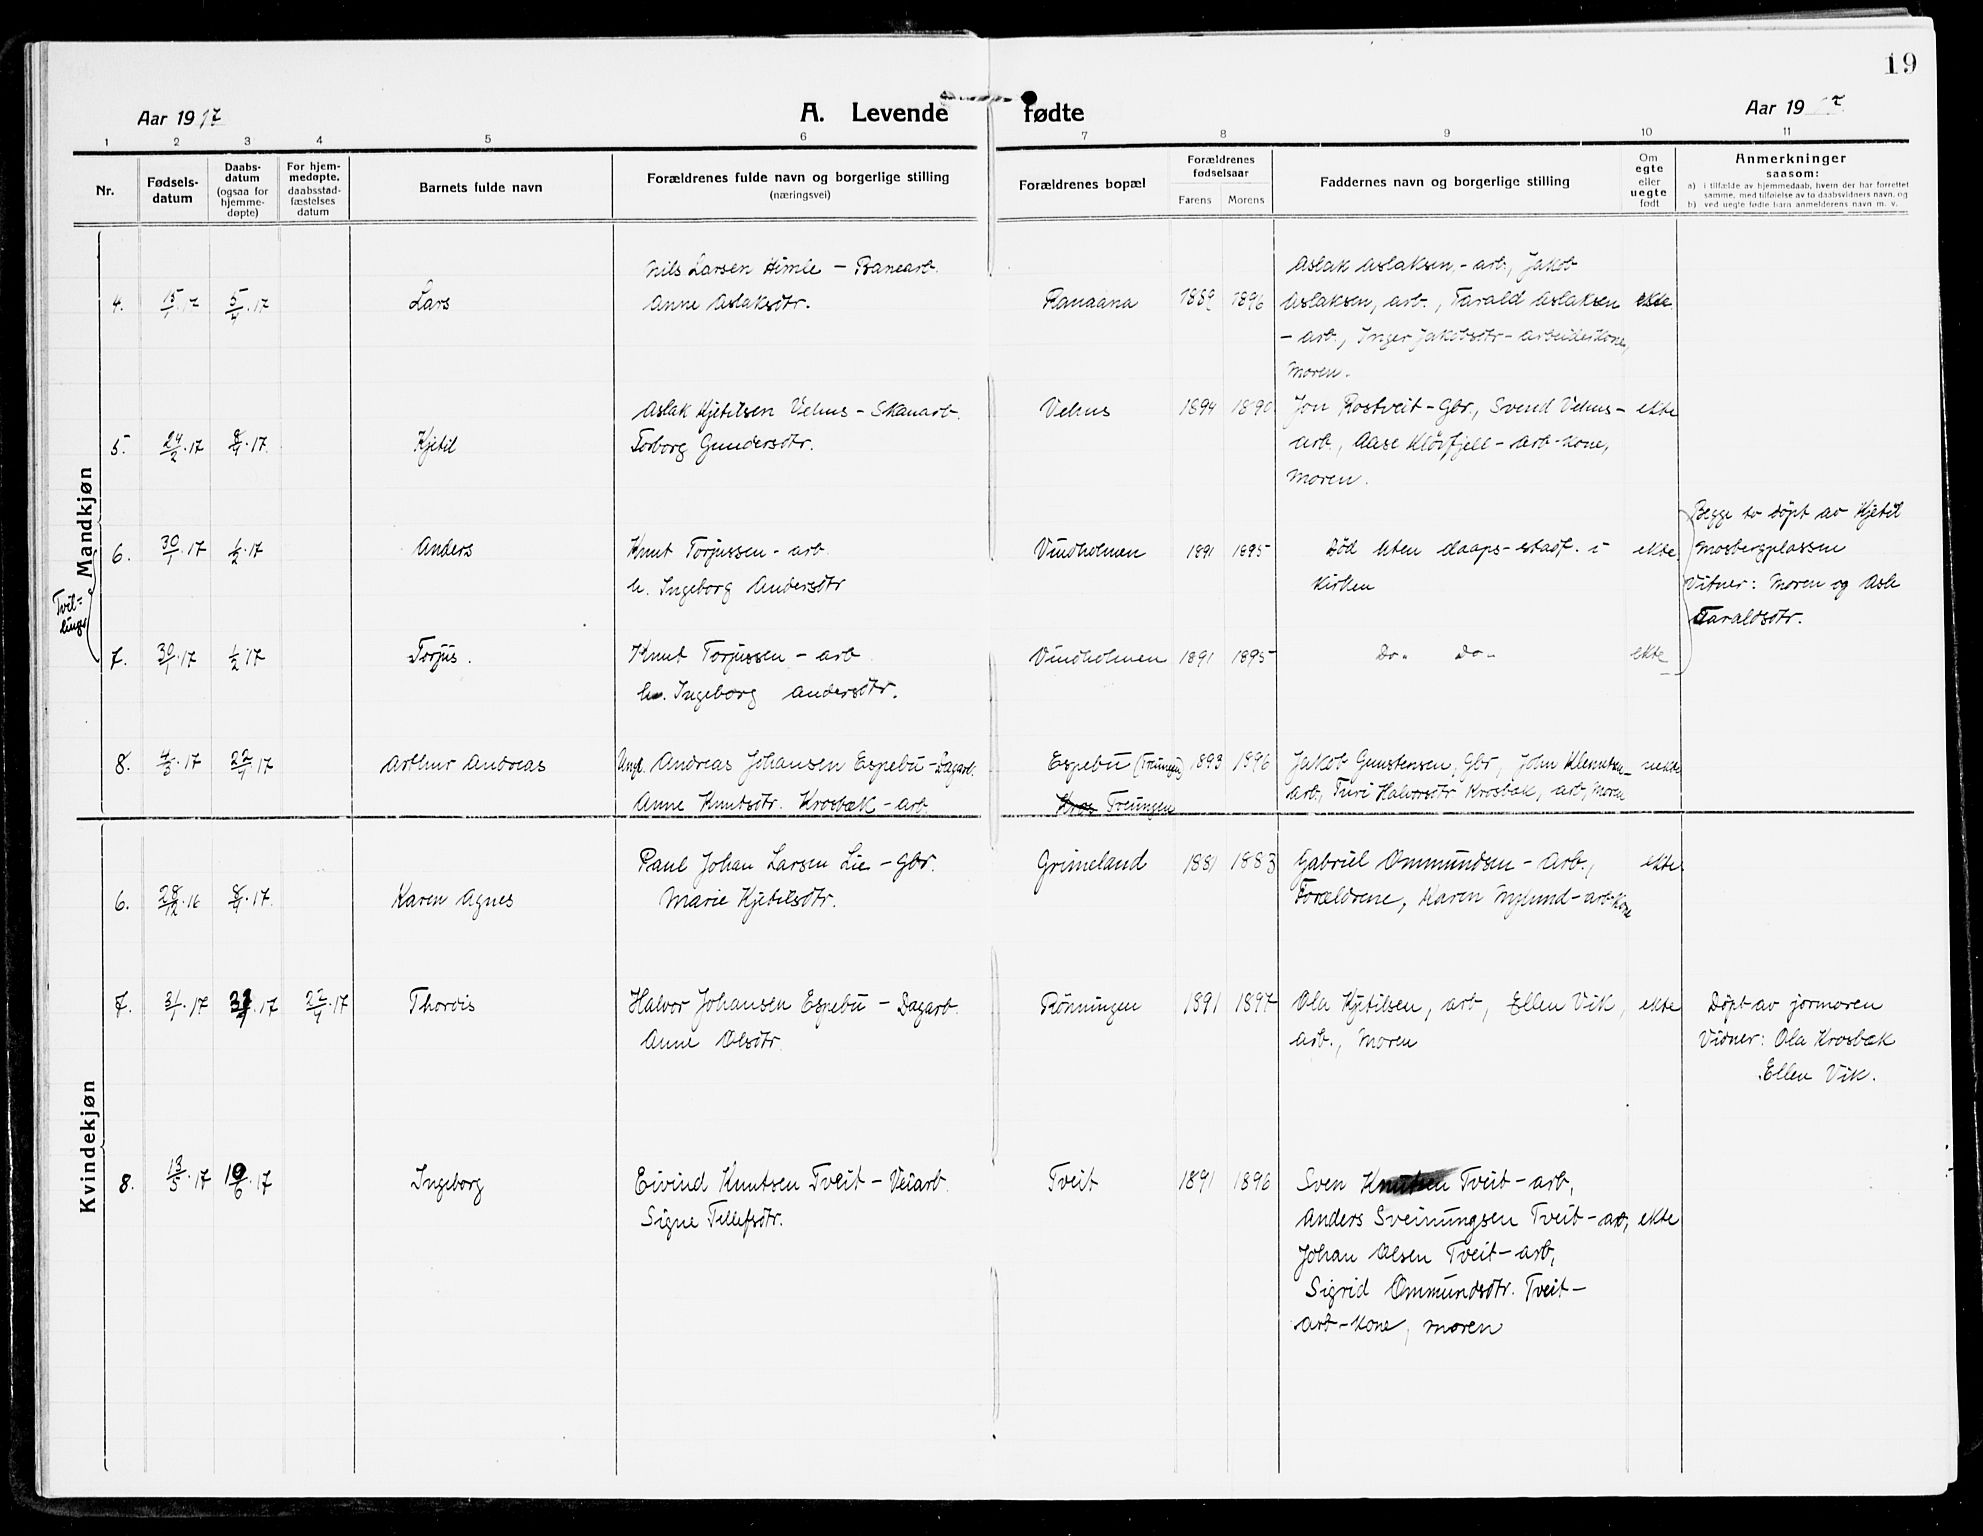 19
Aar 1917
A. Levende fødte
Aar 1917
1 2 3 4 5 6 7 8 9 10 11
Nr.
Fødsels-
datum
Daabs-
datum
(ogsaa for
hjemme-
døpte)
For hjem-
medøpte.
daabsstad-
fæstelses
datum
Barnets fulde navn
Forældrenes fulde navn og borgerlige stilling
(næringsvei)
Forældrenes bopæl
Forældrenes
fødselsaar
Farens Morens
Faddernes navn og borgerlige stilling
Om
egte
eller
uegte
født
Anmerkninger
saasom:
a) i tilfælde av hjemmedaab, hvem der har forrettet
samme, med tilføielse av to daabsvidners navn, og
b) ved uegte fødte barn anmelderens navn m. v.
Mandkjøn
4. 15/1 17 5/4 17 Lars
Nils Larsen Himle - Banearb.
Anne Aslaksdtr.
Ranaana 1889 1896
Aslak Aslaksen, - arb., Jakob
Aslaksen, arb., Tarald Aslaksen
- arb., Inger Jakobsdtr - arbeiderkone,
Moren.
ekte.
5. 24/2 17 8/4 17. Kjetil
Aslak Kjetilsen Vehus - Skauarb.
Torborg Gundersdtr.
Vehus 1894 1890
Jon Rostveit - Gbr., Svend Vehus -
arb., Aase Kløvfjell - arb-kone,
Moren.
ekte
Tvil-
linger
6. 30/1 17 1/2 17 Anders
Knut Torjussen - arb.
h. Ingeborg Andersdtr
Vindholmen 1891 1895
Død uten daaps-stadf. i
Kirken
ekte.
Begge to døpt av Kjetil
Mosbergplassen
Vitner: Moren og Asle
Taraldsdtr.
7. 30/1 17 1/2 17 Torjus.
Knut Torjussen - arb.
h. Ingeborg Andersdtr.
Vindholmen 1891 1895
Do- Do-
ekte
8. 4/3 17 22/4 17 Arthur Andreas
Ungk. Andreas Johansen Espebu - Dagarb.
Anne Knutsdtr. Krosbæk - arb.
Espebu (Treungen) 1893 1896
Kros Treungen
Jakob Gunstensen, Gbr, John Klemetsen -
arb, Turi Halvorsdtr Krosbæk, arb, Moren
uekte
Kvindekjøn
6. 28/12 16 8/4 17. Karen Agnes
Paul Johan Larsen Lie - Gbr.
Marie Kjetilsdtr.
Grimeland 1881 1883
Gabriel Ommundsen - Arb.,
Forældrene, Karen Nylund - arb-kone
ekte.
7. 31/1 17 17 22/4 17 Thordis
Halvor Johansen Espebu - Dagarb.
Anne Olsdtr.
Rönningen 1891 1897
Ola Kjetilsen, arb, Ellen Vik,
arb., Moren
ekte
Døpt av jormoren
Vidner: Ola Krosbæk
Ellen Vik.
8. 13/5 17 10/6 17 Ingeborg
Eivind Knutsen Tveit - Veiarb.
Signe Tellefsdtr.
Tveit 1891 1896
Sven Knutsen Tveit - arb,
Anders Sveinungsen Tveit - arb,
Johan Olsen Tveit - arb,
Sigrid Ommundsdtr. Tveit -
arb-kone, moren
ekte